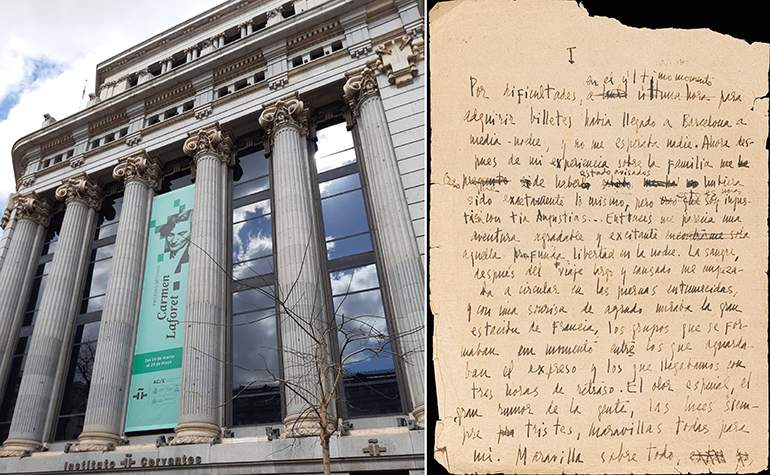 Carmen
Laforet
AC/E
Instituto Cervantes
I
en el último momento
Por dificultades, a última hora para
adquirir billetes había llegado a Barcelona a
media-noche, y no me esperaba nadie. Ahora des-
pues de mi experiencia sobre la familia me he
estado avisados
hubiera
sido exactamente lo mismo, pero
ticia con tia Angustias... Entonces me parecía una
aventura agradable y excitante encontrarme sola
aquella profunda libertad en la noche. La sangre,
después del viaje largo y cansado me empeza-
ba a circular en las piernas entumecidas,
y con una sonrisa de agrado miraba la gran
estación de Francia, los grupos que se for-
maban en momento entre los que aguarda-
ban el expreso y los que llegabamos con
tres horas de retraso. El olor especial, el
gran rumor de la gente, las luces siem-
pre tristes, maravillas todas para
mi. Maravilla sobre todo,